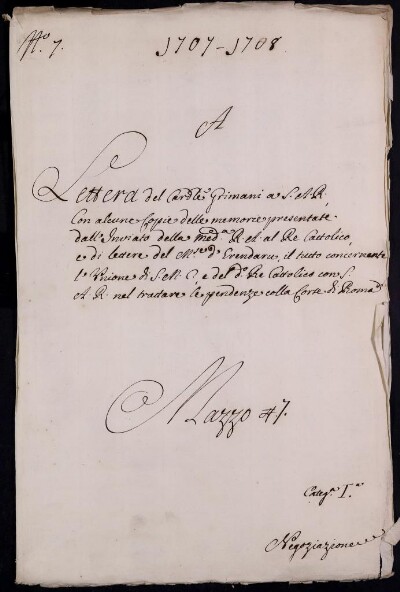 N.o 7.
1707-1708
A
Lettera del Card.le Grimani a S. A. R.,
Con alcune Copie delle memorie presentate
dall'Inviato della med.ma R. A. al Re Cattolico,
e di lettere del M.se d' Erendazu, il tutto concernente
l'Unione di S. M. C., e del d.o Re Cattolico con S.
A. R. nel trattare le pendenze colla Corte di Roma
Mazzo 47.
Categ.a I.a
Negoziazione